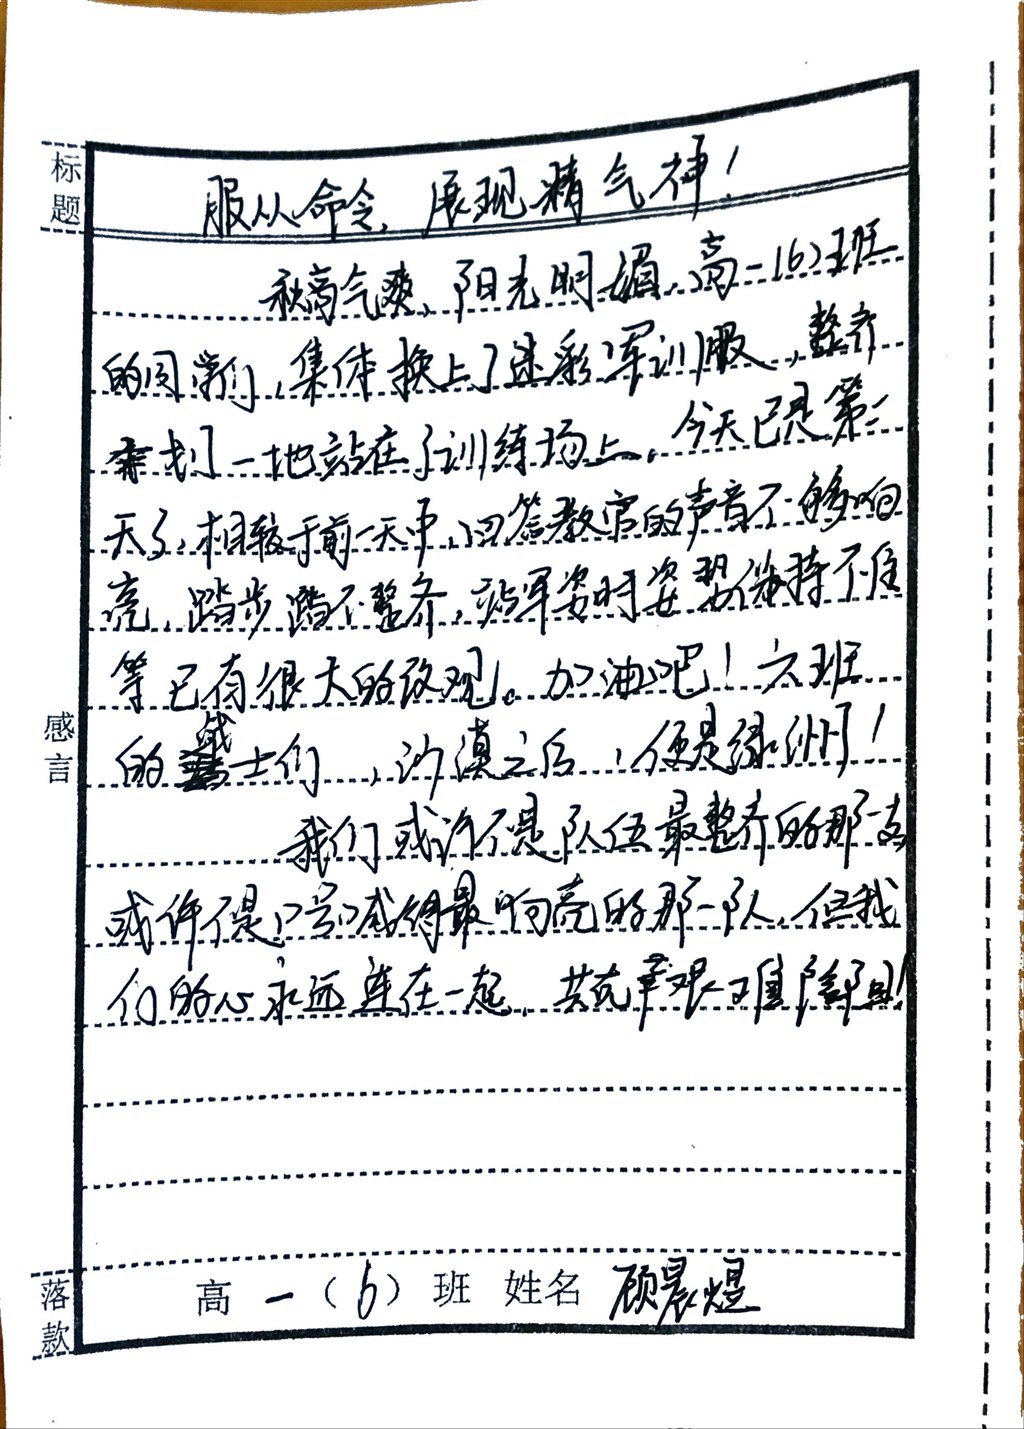 标题
服从命令、展现精气神！
秋高气爽，阳光明媚，高一(6)班
的同学们，集体换上了迷彩军训服，整齐
划一地站在了训练场上。今天已是第二
天了，相较于前一天中，回答教官的声音不够响
亮，踏步踏不整齐，站军姿时姿势保持不住
等已有很大的改观。加油吧！六班
的战士们，沙漠之后，便是绿洲！
感言
我们或许不是队伍最整齐的那一支，
或许不是口号喊得最响亮的那一队，但我
们的心永远连在一起，共克艰难险阻！
落款
高一(6)班 姓名 顾晨煜